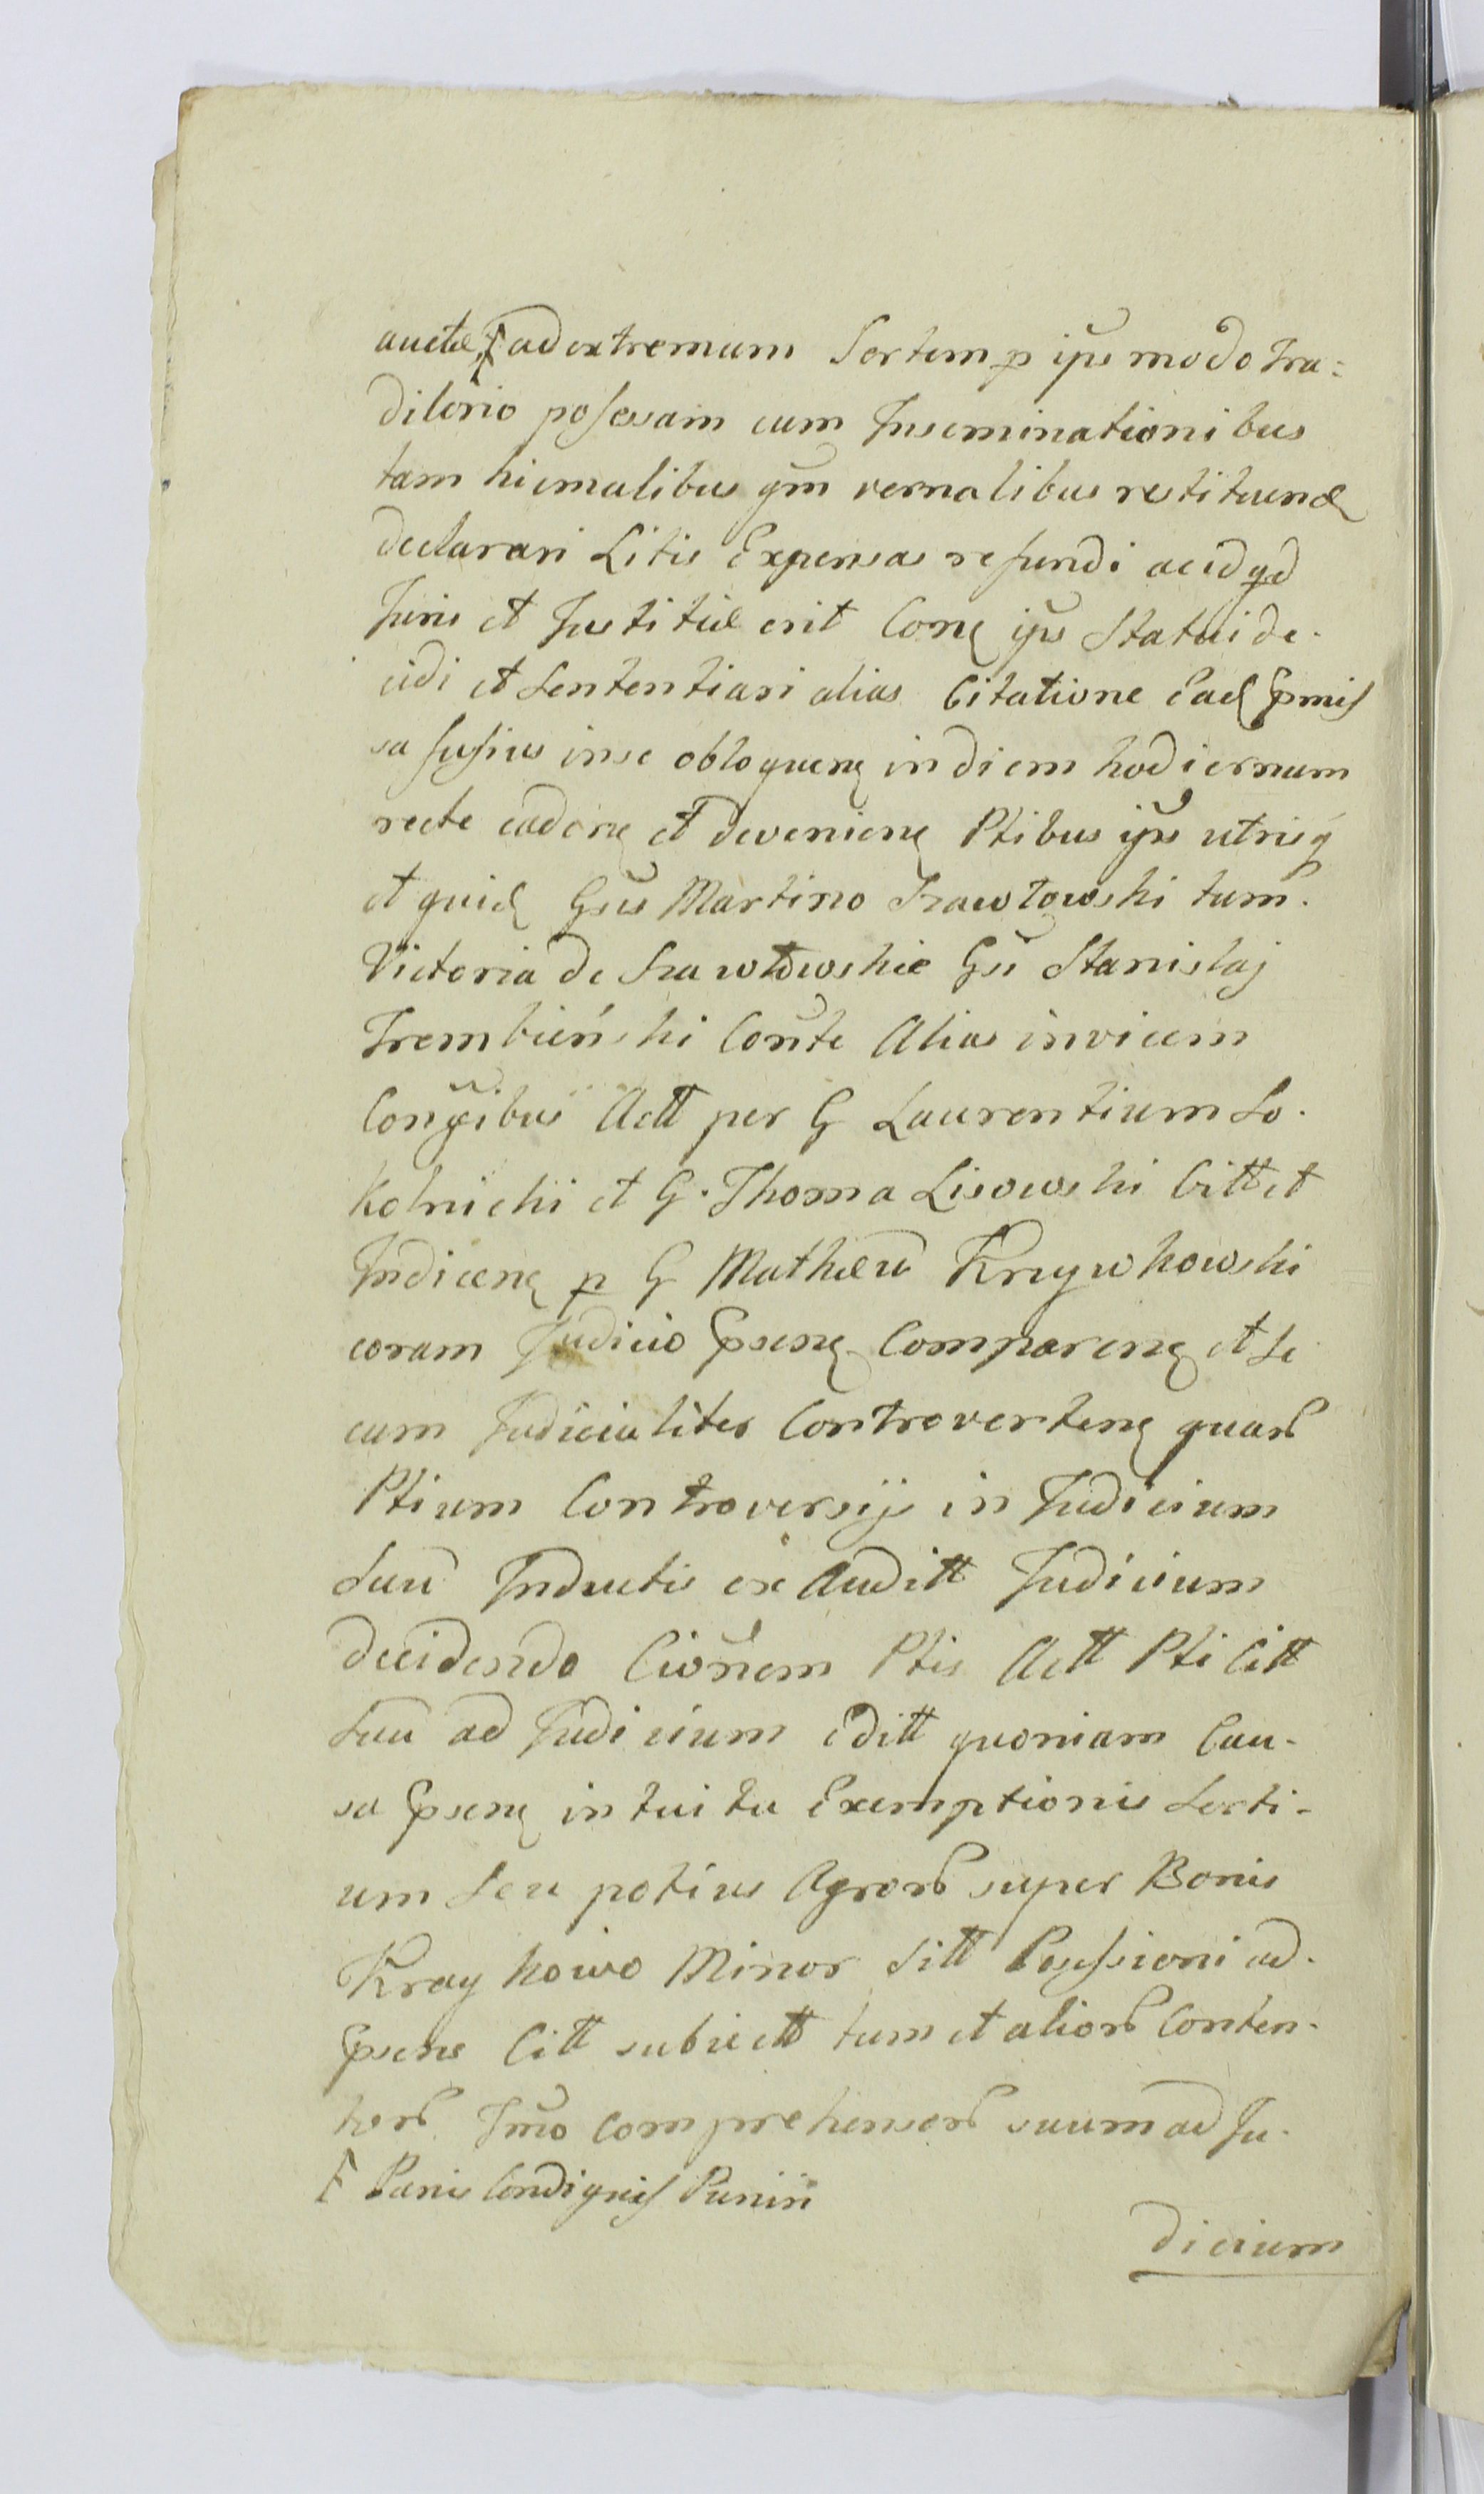 auctæ F ad extremum Sortem p ips modo tra=
ditorio possessam cum Inseminationibus
tam hiemalibus qm vernalibus restituend
declarari Litis Expensas refundi ac id qd
Juris et Justitiæ erit Conq ips Statui de-
cidi et Sententiari alias Citatione Ead Pmis
sa fusius in se obloquenq in diem hodiernum
recte caden et devenienq Ptibus ips utrisq
et quid Gsis Martino Szawłowski tum.
Victoria de Szawłowskie Gsi Stanislaj
Trembiński Conte Alias invicem
Congibus Actt per G Laurentium So-
kolnicki et G. Thoma Lisowski Citt et
Indicenq p G Mathæu Kruywkowski
coram Judicio Psenq Comparenq et Se
cum Judicialiter Controvertenq quar
Ptium Controversijs in Judicium
Suu Inductis ex Auditt Judicium
decidendo Cionem Ptis Actt Pti Citt
Suu ad Judicium Editt quoniam Cau-
sa Psenq intuitu Exemptionis Sorti-
um Seu potius Agror super Bonis
Kraykowo Minor Sitt Possessioni ad-
Psens Citt subiectt tum et alior Conten-
tor Imo Comprehensor suum ad Ju-
F Pænis Condignis Puniri
dicium